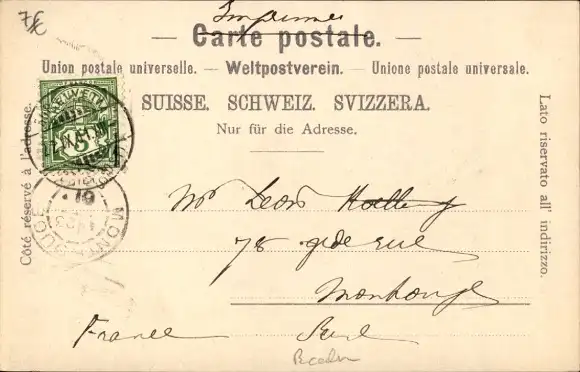 7€
Imprimé
— Carte postale. —
Union postale universelle. — Weltpostverein. — Unione postale universale.
SUISSE. SCHWEIZ. SVIZZERA.
Nur für die Adresse.
Côté réservé à l'adresse.
Lato riservato all' indirizzo.
HELVETIA
5
MONTROUGE
Mr Leon
78 gde rue
Montrouge
France Seine